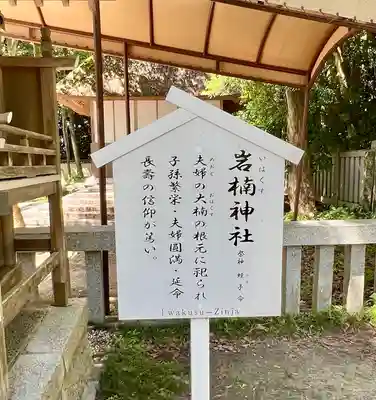 いはくす
岩楠神社
祭神 蛭子命
ひるこ
めおと おほくす
夫婦の大楠の根元に祀られ
子孫繁栄・夫婦圓満・延命
長壽の信仰が篤い。
Iwakusu–Zinja